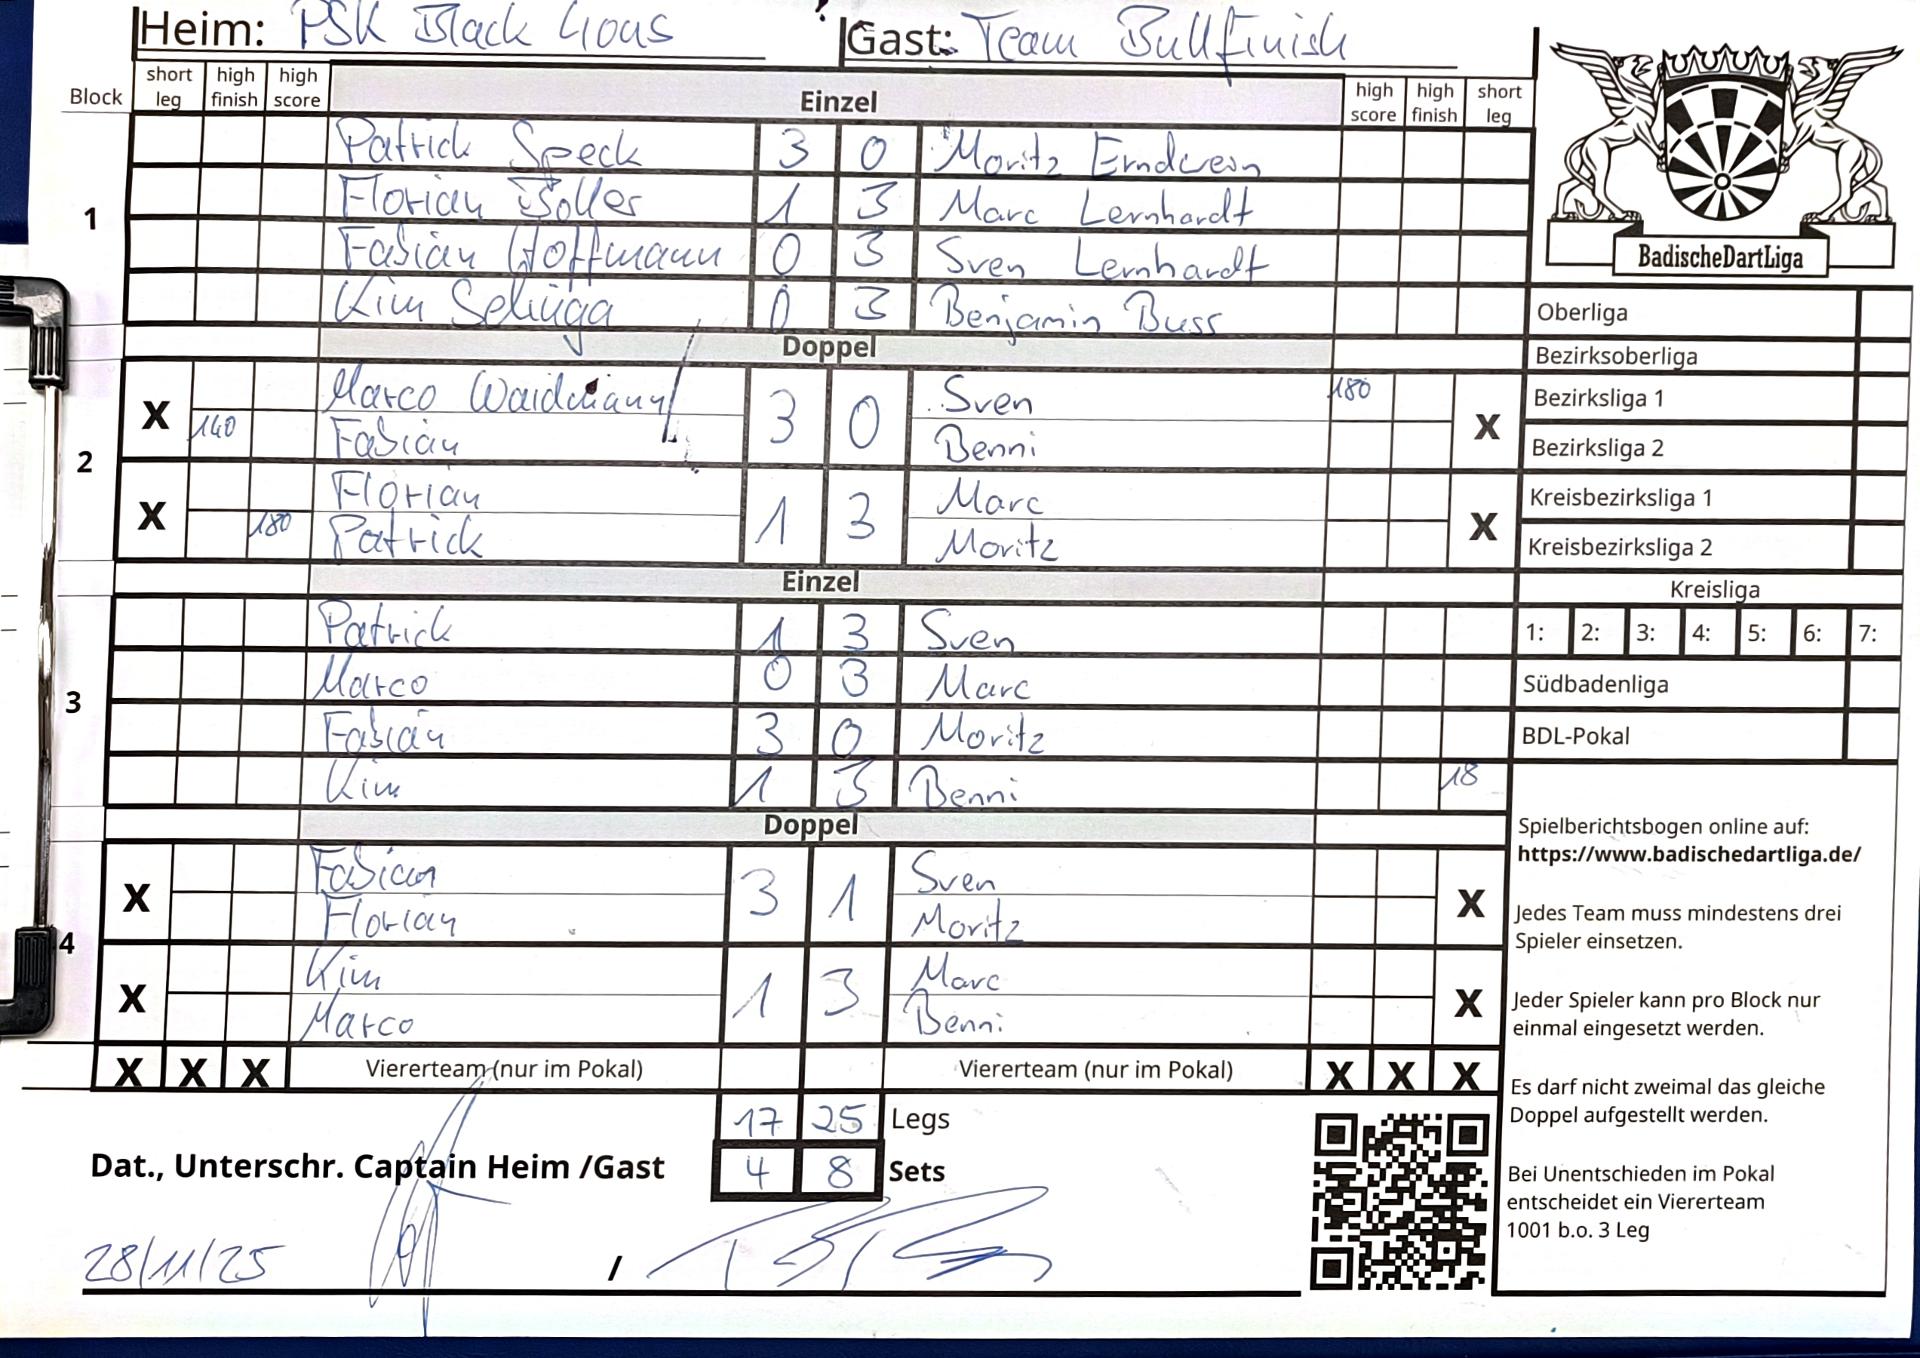 Heim: PSK Black Lions Gast: Team Bullfinish
Block short leg high finish high score Einzel high score high finish short leg
Patrick Speck 3 0 Moritz Erndwein
1 Florian Boller 1 3 Marc Lernhardt
Fabian Hoffmann 0 3 Sven Lernhardt
Kim 0 3 Benjamin Buss
Doppel
X Marco Waidmann 3 0 Sven 180 X
140 Fabian Benni
2
X Florian 1 3 Marc X
180 Patrick Moritz
Einzel
Patrick 1 3 Sven
3 Marco 0 3 Marc
Fabian 3 0 Moritz
Kim 1 3 Benni 18
Doppel
X Fabian 3 1 Sven X
Florian Moritz
4
X Kim 1 3 Marc X
Marco Benni
X X X Viererteam (nur im Pokal) Viererteam (nur im Pokal) X X X
17 25 Legs
Dat., Unterschr. Captain Heim /Gast 4 8 Sets
28/11/25 /
BadischeDartLiga
Oberliga
Bezirksoberliga
Bezirksliga 1
Bezirksliga 2
Kreisbezirksliga 1
Kreisbezirksliga 2
Kreisliga
1: 2: 3: 4: 5: 6: 7:
Südbadenliga
BDL-Pokal
Spielberichtsbogen online auf:
https://www.badischedartliga.de/
Jedes Team muss mindestens drei
Spieler einsetzen.
Jeder Spieler kann pro Block nur
einmal eingesetzt werden.
Es darf nicht zweimal das gleiche
Doppel aufgestellt werden.
Bei Unentschieden im Pokal
entscheidet ein Viererteam
1001 b.o. 3 Leg